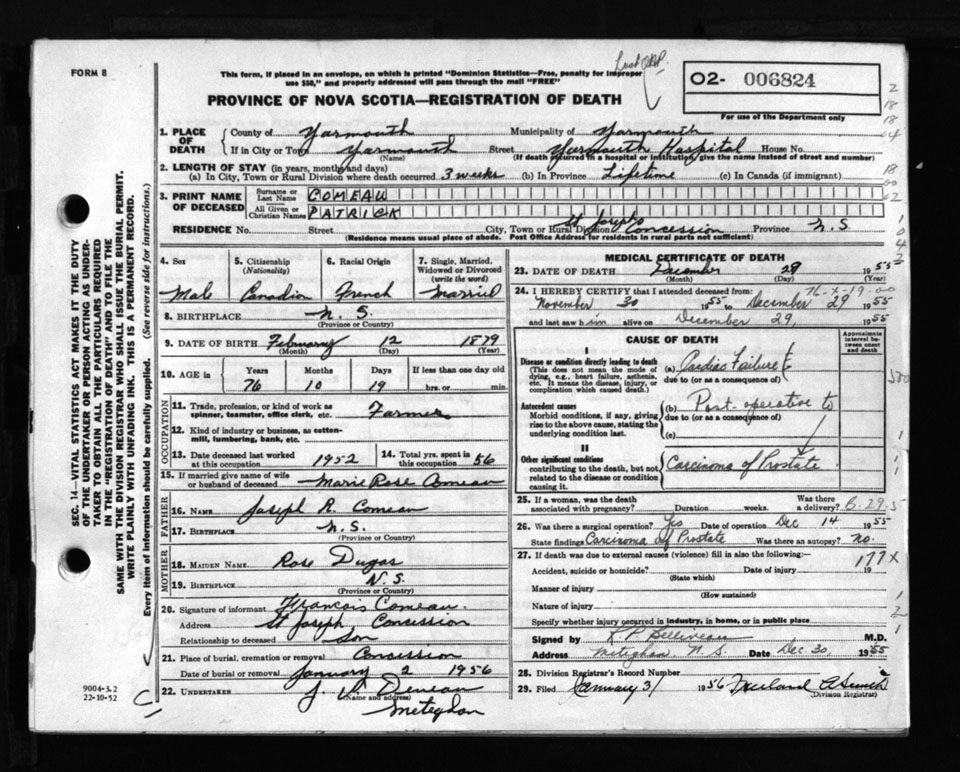 FORM 8
This form, if placed in an envelope, on which is printed "Dominion Statistics—Free, penalty for improper
use $50," and properly addressed will pass through the mail "FREE"
O2- 006824
For use of the Department only
PROVINCE OF NOVA SCOTIA—REGISTRATION OF DEATH
1. PLACE OF DEATH
County of Yarmouth Municipality of Yarmouth
If in City or Town Yarmouth Street Yarmouth Hospital House No.
(Name) (If death occurred in a hospital or institution, give the name instead of street and number)
2. LENGTH OF STAY (in years, months and days)
(a) In City, Town or Rural Division where death occurred 3 weeks (b) In Province Lifetime (c) In Canada (if immigrant)
3. PRINT NAME OF DECEASED
Surname or Last Name COMEAU
All Given or Christian Names PATRICK
St Joseph
RESIDENCE No. Street City, Town or Rural Division Concession Province N.S.
(Residence means usual place of abode. Post Office Address for residents in rural parts not sufficient)
4. Sex Male
5. Citizenship (Nationality) Canadian
6. Racial Origin French
7. Single, Married, Widowed or Divorced (write the word) Married
8. BIRTHPLACE N.S.
(Province or Country)
9. DATE OF BIRTH February 12 1879
(Month) (Day) (Year)
10. AGE in Years Months Days If less than one day old
76 10 19 hrs. or min.
OCCUPATION
11. Trade, profession, or kind of work as spinner, teamster, office clerk, etc. Farmer
12. Kind of industry or business, as cotton-mill, lumbering, bank, etc.
13. Date deceased last worked at this occupation 1952
14. Total yrs. spent in this occupation 56
15. If married give name of wife or husband of deceased Marie Rose Comeau
FATHER
16. NAME Joseph R. Comeau
17. BIRTHPLACE N.S.
(Province or Country)
MOTHER
18. MAIDEN NAME Rose Dugas
19. BIRTHPLACE N.S.
(Province or Country)
20. Signature of informant Francois Comeau.
Address St Joseph Concession
Relationship to deceased Son
21. Place of burial, cremation or removal Concession
Date of burial or removal January 2 1956
22. UNDERTAKER
(Name and address)
Meteghan
MEDICAL CERTIFICATE OF DEATH
23. DATE OF DEATH December 29 1955
(Month) (Day) (Year)
76-X-19-00
24. I HEREBY CERTIFY that I attended deceased from:
November 30 1955 to December 29 1955
and last saw him alive on December 29, 1955
CAUSE OF DEATH
Approximate interval between onset and death
I
Disease or condition directly leading to death
(This does not mean the mode of dying, e.g., heart failure, asthenia, etc. It means the disease, injury, or complication which caused death.)
(a) Cardiac Failure
due to (or as a consequence of)
Antecedent causes
Morbid conditions, if any, giving rise to the above cause, stating the underlying condition last.
(b) Post-operative to
due to (or as a consequence of)
(c)
II
Other significant conditions
contributing to the death, but not related to the disease or condition causing it.
Carcinoma of Prostate
25. If a woman, was the death associated with pregnancy? Duration weeks. Was there a delivery?
26. Was there a surgical operation? Yes Date of operation Dec 14 1955
State findings Carcinoma of Prostate Was there an autopsy? no.
27. If death was due to external causes (violence) fill in also the following:—
177X
Accident, suicide or homicide? Date of injury 19
(State which)
Manner of injury
(How sustained)
Nature of injury
Specify whether injury occurred in industry, in home, or in public place
Signed by Belliveau M.D.
Address Meteghan N.S. Date Dec 30, 1955
28. Division Registrar's Record Number
29. Filed January 31 1956
(Division Registrar)
SEC. 14—VITAL STATISTICS ACT MAKES IT THE DUTY
OF THE UNDERTAKER OR PERSON ACTING AS UNDER-
TAKER TO OBTAIN ALL THE PARTICULARS REQUIRED
IN THE "REGISTRATION OF DEATH" AND TO FILE THE
SAME WITH THE DIVISION REGISTRAR WHO SHALL ISSUE THE BURIAL PERMIT.
WRITE PLAINLY WITH UNFADING INK. THIS IS A PERMANENT RECORD.
Every item of information should be carefully supplied. (See reverse side for instructions.)
9004-3.2
22-10-52